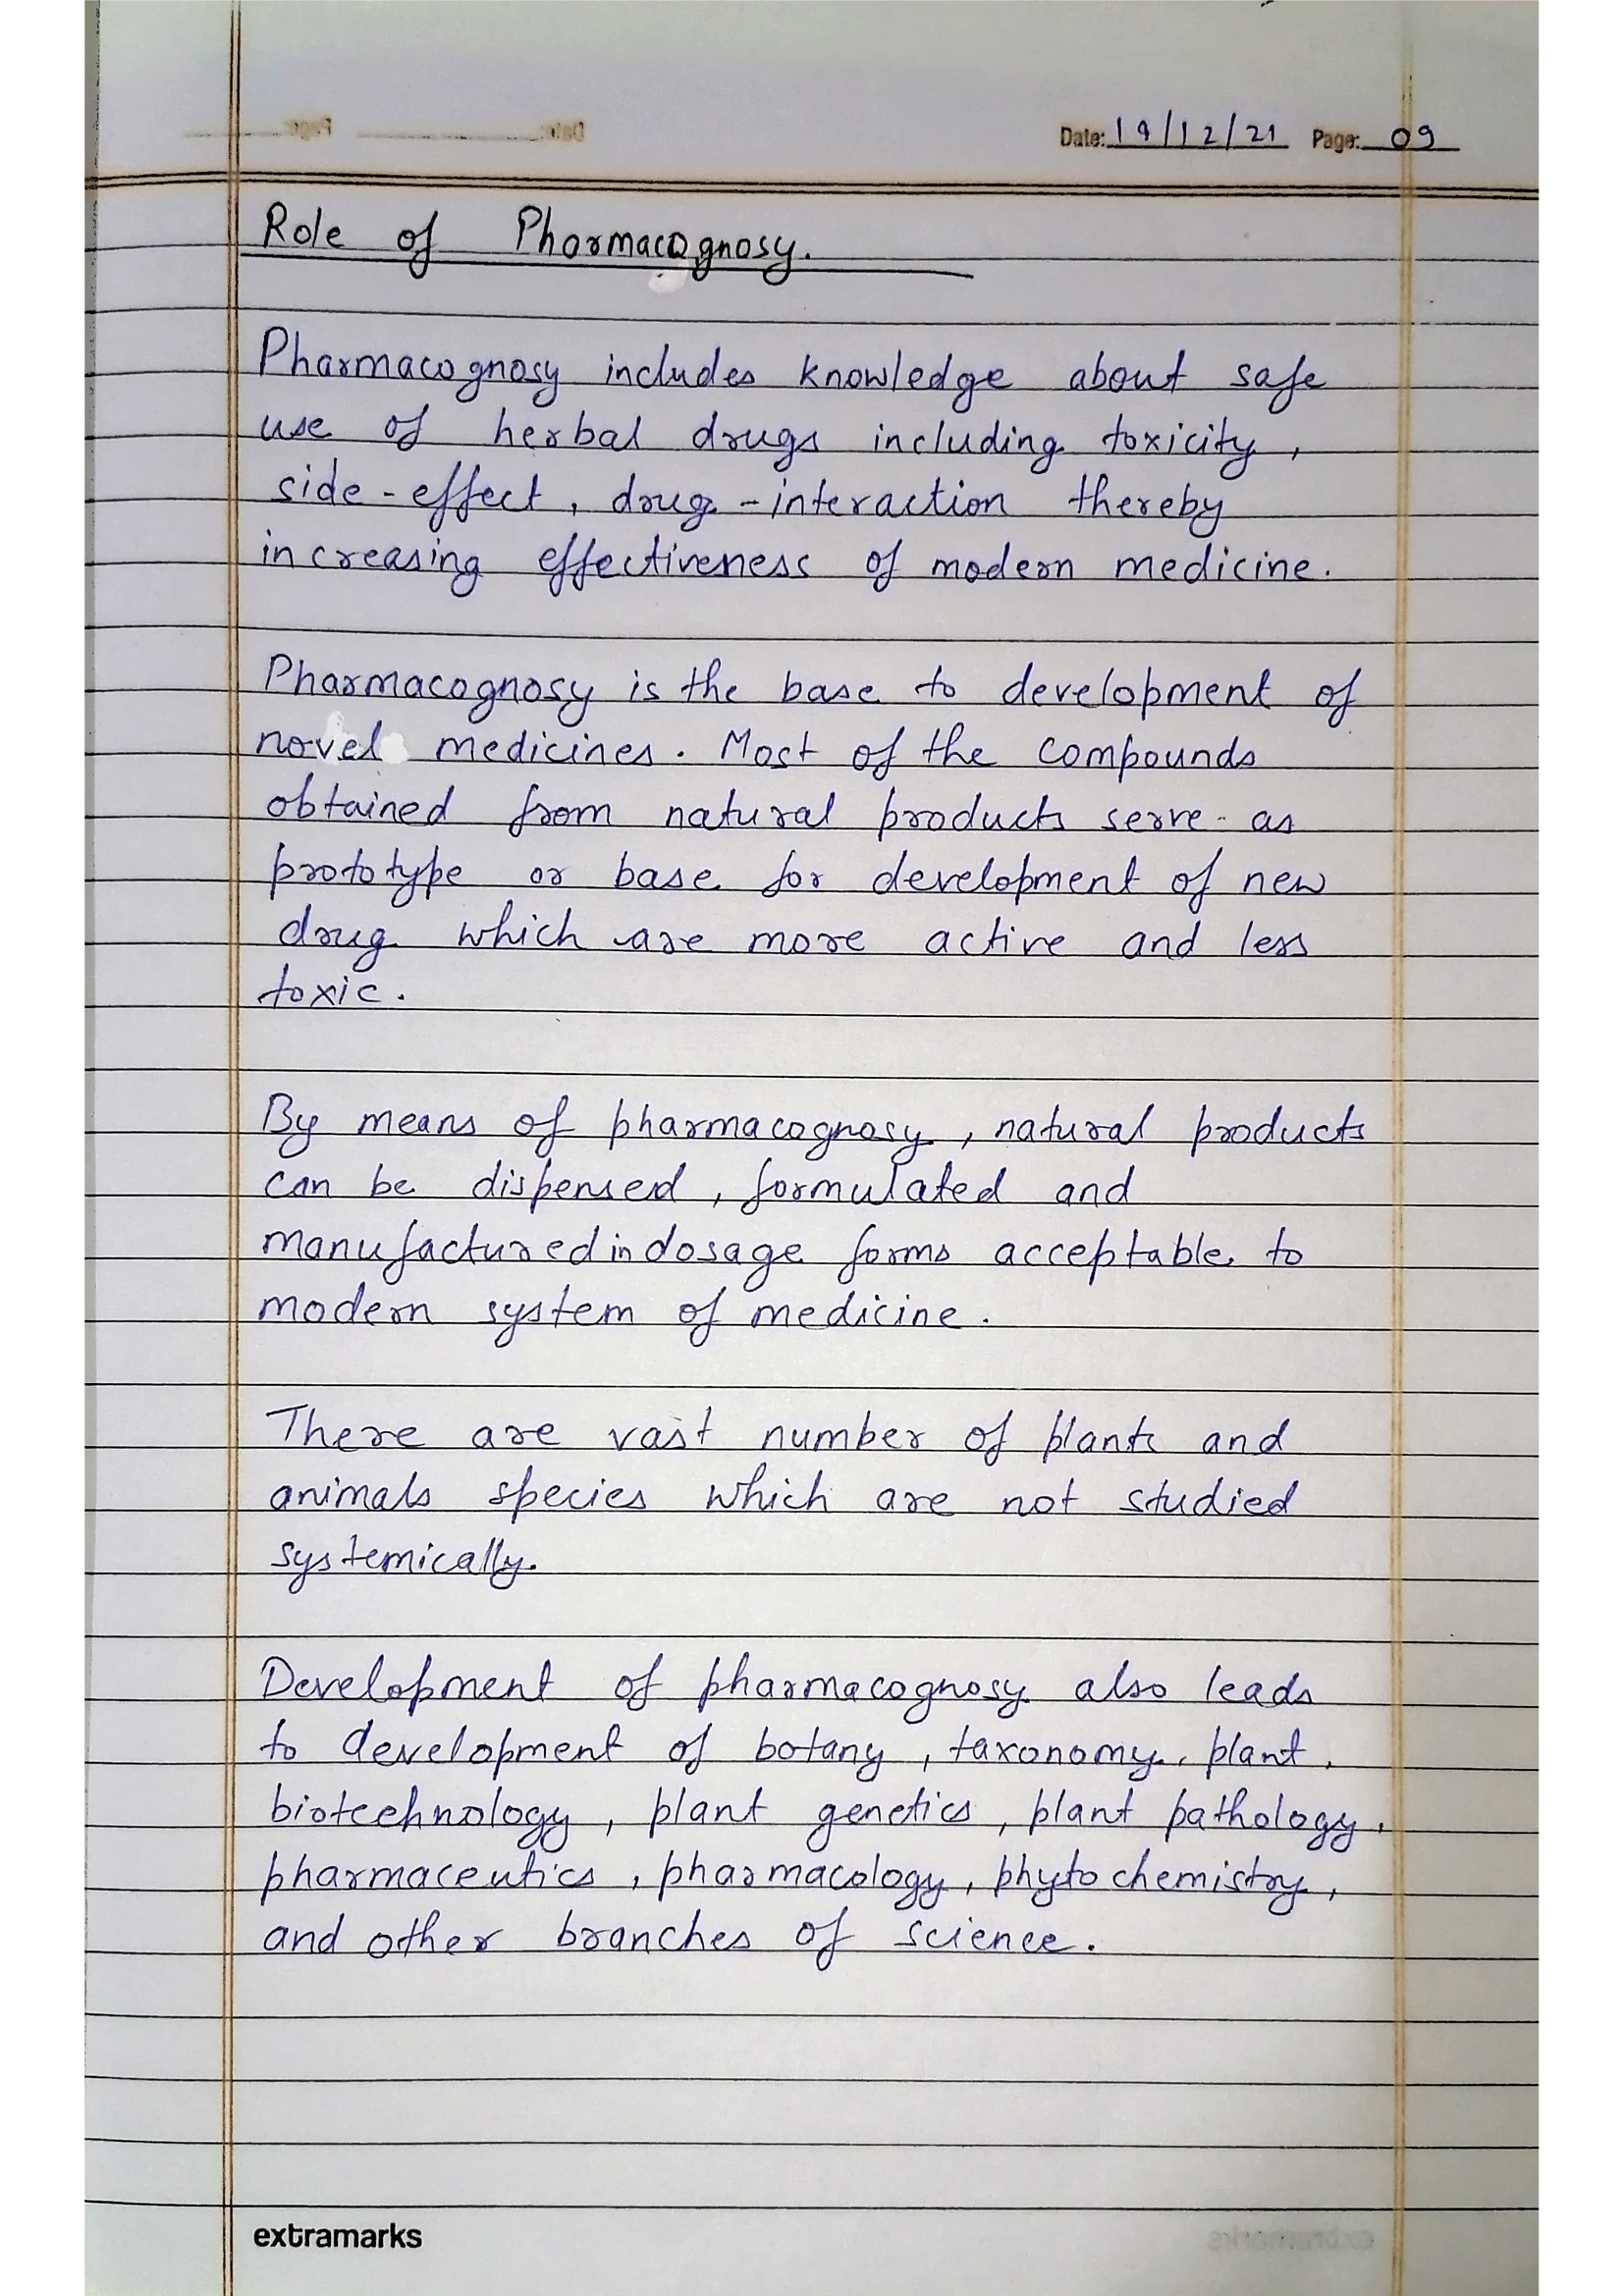 Date: 19/12/21 Page: 09
Role of Pharmacognosy.
Pharmacognosy includes knowledge about safe
use of herbal drugs including toxicity,
side-effect, drug-interaction thereby
increasing effectiveness of modern medicine.
Pharmacognosy is the base to development of
novel medicines. Most of the compounds
obtained from natural products serve as
prototype or base for development of new
drug which are more active and less
toxic.
By means of pharmacognosy, natural products
can be dispensed, formulated and
manufactured in dosage forms acceptable to
modern system of medicine.
There are vast number of plants and
animals species which are not studied
systemically.
Development of pharmacognosy also leads
to development of botany, taxonomy, plant,
biotechnology, plant genetics, plant pathology,
pharmaceutics, pharmacology, phytochemistry,
and other branches of science.
extramarks